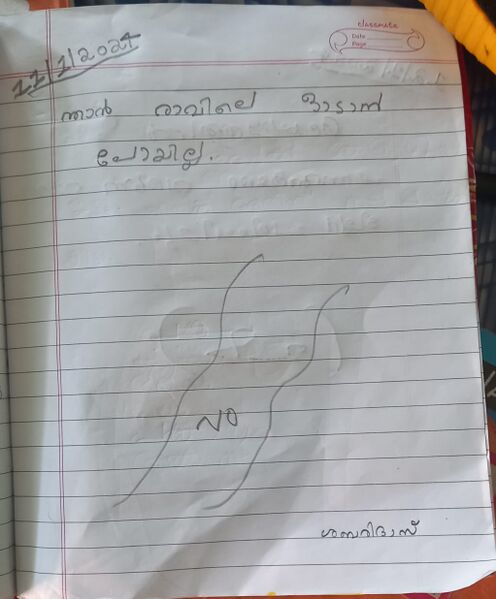 classmate
Date
Page
11/1/2025
ഞാൻ രാവിലെ ഓടാൻ
പോയില്ല.
ശബരിദാസ്